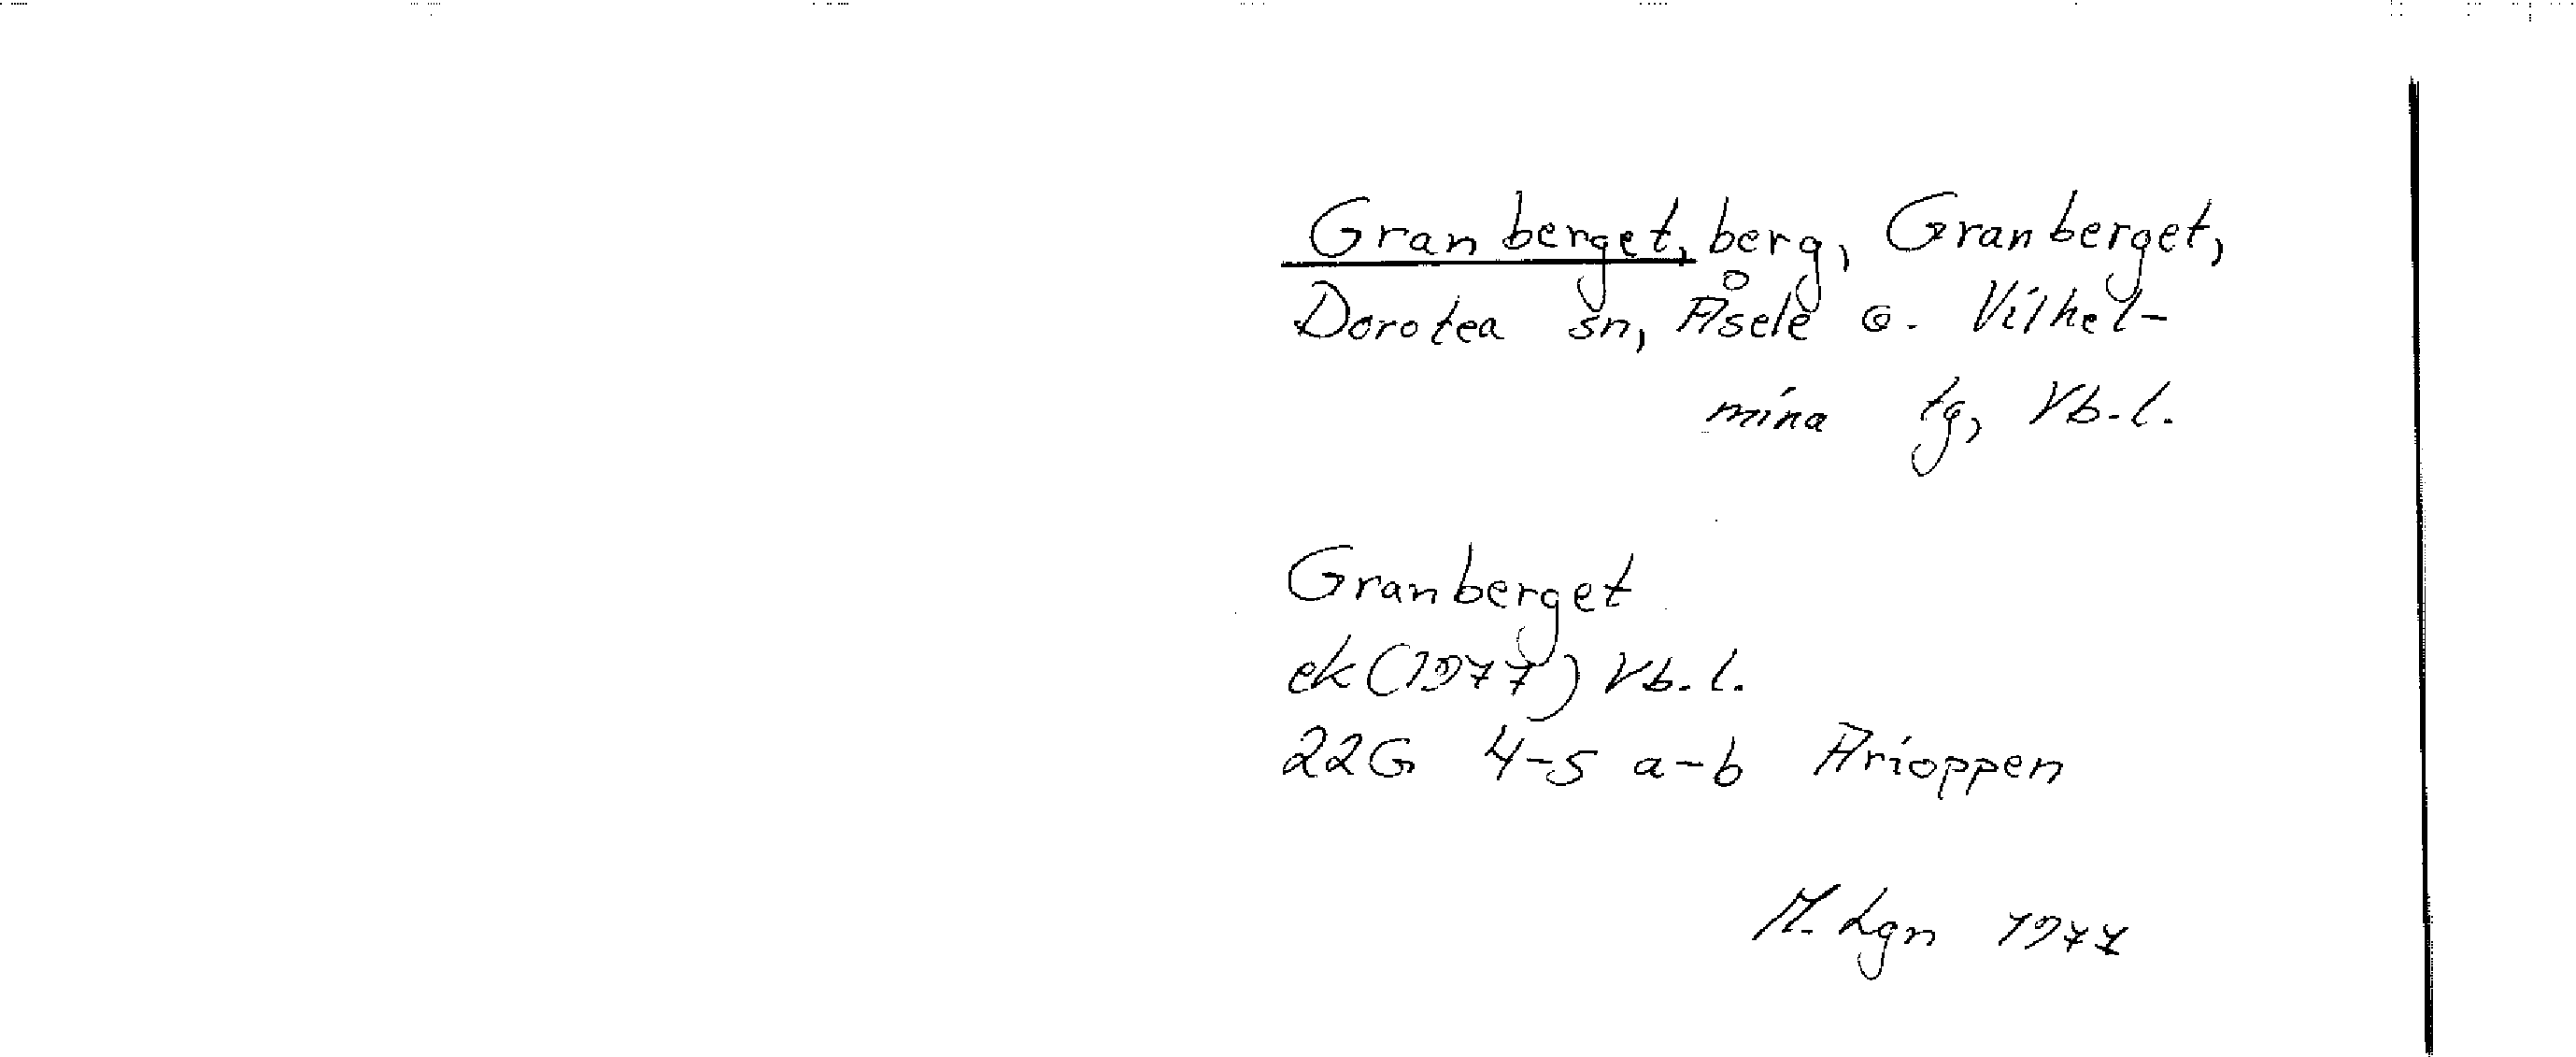 Granberget, berg, Granberget,
Dorotea sn, Åsele o. Vilhel-
mina tg, Vb.l.
Granberget
ek(1977) Vb.l.
22G 4-5 a-b Arioppen
M. Lgn 1977